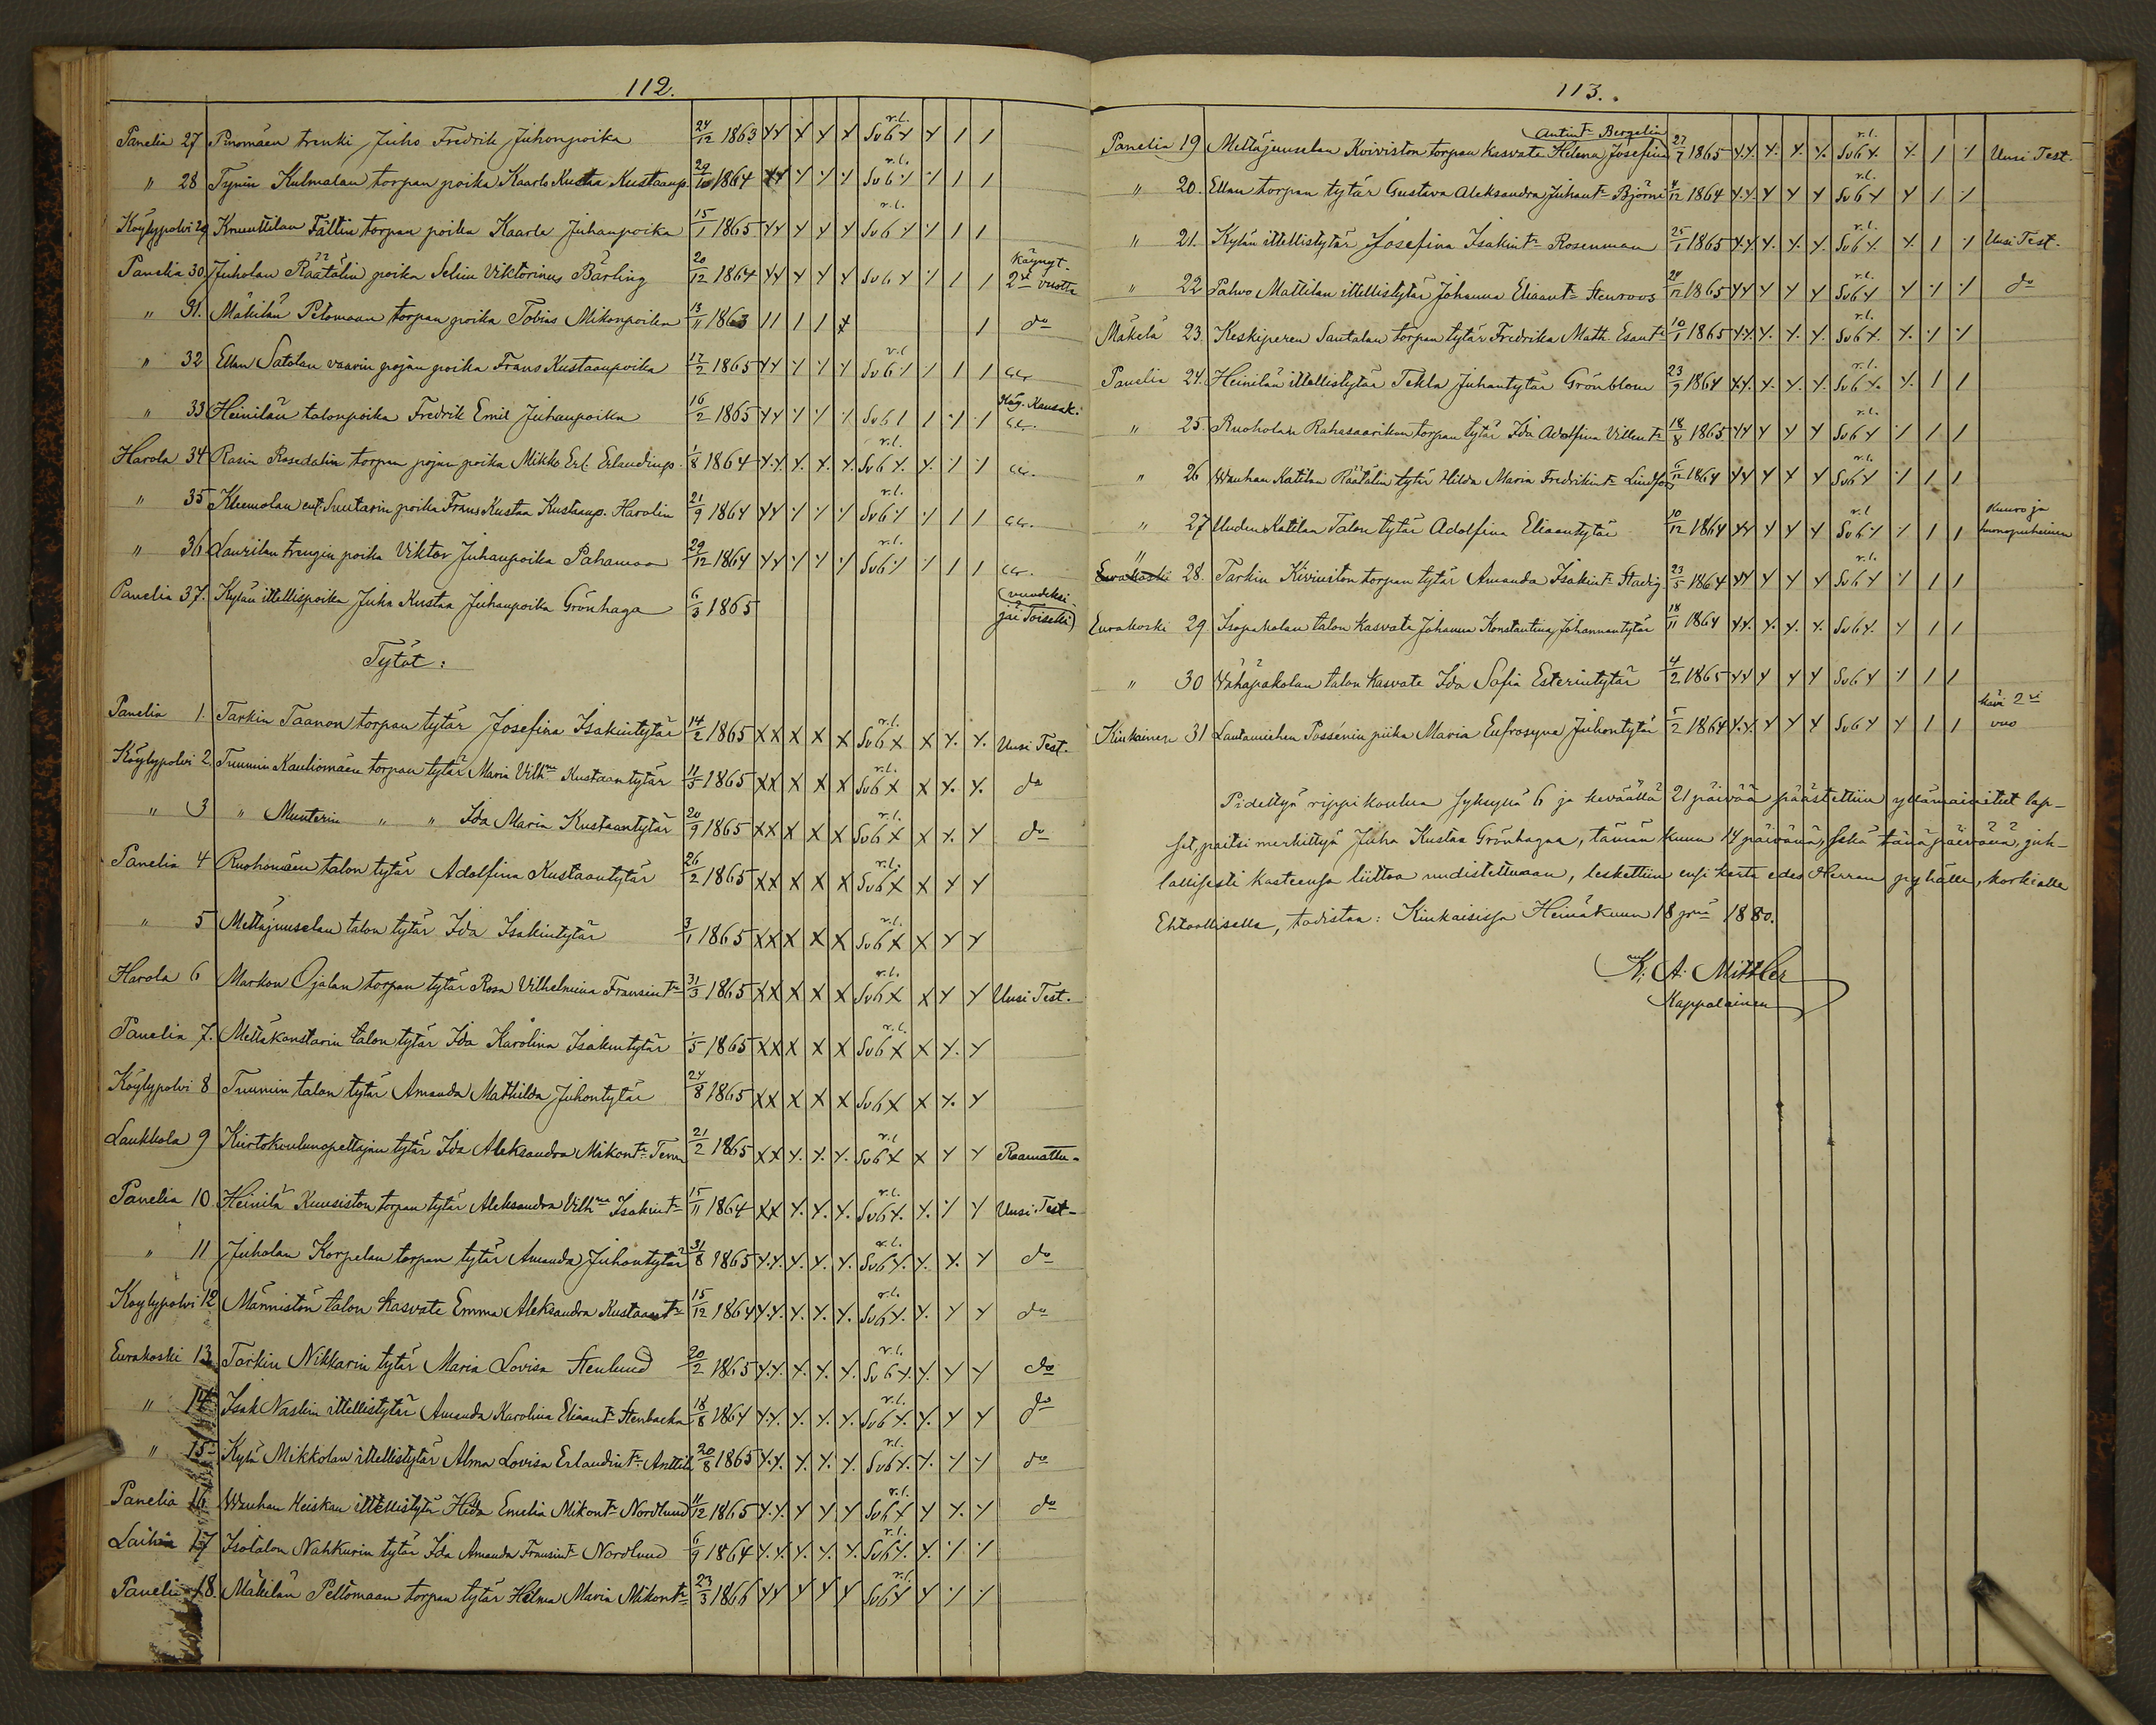 112.
Panelia 27 Pinomäen trenki Juho Fredrik Juhonpoika 24/12 1863 r.l. Sv6
" 28 Tynin Kulmalan torpan poika Kaarlo Kustaa Kustaanp. 29/10 1864 r.l. Sv6
Köylypolvi 29 Knuuttilan Fältin torpan poika Kaarle Juhanpoika 15/1 1865 r.l. Sv6
Panelia 30 Juholan Räätälin poika Selim Viktorinus Bärling 20/12 1864 Sv6 Käynyt 2si vuotta
" 31. Mäkilän Peltomaan torpan poika Tobias Mikonpoika 13/11 1863 do
" 32 Ellan Satolan vaarin pojan poika Frans Kustaanpoika 17/2 1865 r.l. Sv6
" 33 Heinilän talonpoika Fredrik Emil Juhanpoika 16/2 1865 Sv6 Käy. Kansak.
Harola 34 Rasin Rosedalin torpan pojan poika Mikko Erl. Erlandinp. 1/8 1864 r.l. Sv6
" 35 Klemolan ent. Suutarin poika Frans Kustaa Kustaanp. Harolin 21/9 1864 r.l. Sv6
" 36 Laurilan trengin poika Viktor Juhanpoika Pahamaa 29/12 1864 r.l. Sv6
Panelia 37. Kylän itellispoika Juha Kustaa Juhanpoika Grönhaga 6/3 1865 (vuodeksi jäi Toiseksi)
Tytöt:
Panelia 1. Tarkin Taanon torpan tytär Josefina Isakintytär 14/2 1865 r.l. Sv6 Uusi Test.
Köylypolvi 2. Tuumin Kauliomäen torpan tytär Maria Vilhna Kustaantytär 11/5 1865 r.l. Sv6 do
" 3 " Munterin " " Ida Maria Kustaantytär 20/9 1865 r.l. Sv6 do
Panelia 4 Ruohomäen talon tytär Adolfina Kustaantytär 26/2 1865 r.l. Sv6
" 5 Mettäjuuselan talon tytär Ida Isakintytär 3/1 1865 r.l. Sv6
Harola 6 Markon Ojalan torpan tytär Rosa Vilhelmina Fransint 31/3 1865 r.l. Sv6 Uusi Test.
Panelia 7. Mettäkonstarin talon tytär Ida Karolina Isakintytär 1/5 1865 r.l. Sv6
Köylypolvi 8 Tuumin talon tytär Amanda Mathilda Juhontytär 24/8 1865 Sv6
Laukkola 9 Kiertokoulunopettajan tytär Ida Aleksandra Mikont. 21/2 1865 r.l. Sv6 Raamattu
Panelia 10. Heinilä Kuusiston torpan tytär Aleksandra Vilhna Isakint 15/11 1864 r.l. Sv6 Uusi Test
" 11 Juholan Korpelan torpan tytär Amanda Juhontytär 31/8 1865 r.l. Sv6 do
Köylypolvi 12 Männistön talon kasvate Emma Aleksandra Kustaant 15/12 1864 r.l. Sv6 do
Eurakoski 13 Tarkin Nikkarin tytär Maria Lovisa Stenlund 20/2 1865 r.l. Sv6 do
" 14 Isak Naslin itellistytär Amanda Karolina Eliaant Stenbacka 18/8 1864 r.l. Sv6 do
" 15 Kylä Mikkolan itellistytär Alma Lovisa Erlandint. Anttila 20/8 1865 r.l. Sv6 do
Panelia 16 Wanhan Keiskan itellistytär Hilda Emelia Mikont Nordlund 11/12 1865 r.l. Sv6 do
Laihia 17 Isotalon Nahkurin tytär Ida Amanda Fransint Nordlund 6/9 1864 r.l. Sv6
Panelia 18. Mäkilän Peltomaan torpan tytär Helma Maria Mikont 23/3 1866 r.l. Sv6
113.
Panelia 19 Mettäjuuselan Koiviston torpan kasvate Helena Josefina Antint Bergelin 27/7 1865 r.l. Sv6 Uusi Test.
" 20. Ellan torpan tytär Gustava Aleksandra Juhant Björni 4/12 1864 r.l. Sv6
" 21. Kylän itellistytär Josefina Isakint Rosenman 25/1 1865 r.l. Sv6 Uusi Test.
" 22 Palvo Mattilan itellistytär Johanna Eliaant Stenroos 24/12 1865 r.l. Sv6 do
Mäkelä 23. Keskiperen Santalan torpan tytär Fredrika Math. Esant 10/1 1865 r.l. Sv6
Panelia 24. Heinilän itellistytär Tekla Juhantytär Grönblom 23/9 1864 r.l. Sv6
" 25. Ruoholan Rahasaarikon torpan tytär Ida Adolfina Villent 18/8 1865 r.l. Sv6
" 26 Wanhan Katilan Räätälin tytär Hilda Maria Fredrikint Lindfors 6/12 1864 r.l. Sv6
" 27 Uuden Katilan Talon tytär Adolfina Eliaantytär 10/12 1864 r.l. Sv6 Kuuro ja huonopuheinen
" 28. Tarkin Kiviniston torpan tytär Amanda Isakint Stadig 23/5 1864 r.l. Sv6
Eurakoski 29 Isopaholan talon kasvate Johanna Konstantina Johannantytär 18/11 1864 Sv6
" 30 Wähäpakolan talon kasvate Ida Sofia Esterintytär 4/2 1865 Sv6
Kiukainen 31 Lautamiehen Possénin piika Maria Eufrosyna Juhontytär 5/2 1864 Sv6 kävi 2si vuo
Pidettyä rippikoulua syksyllä 6 ja keväällä 21 päivää päästettiin yllämainitut lap-
set, paitsi merkittyä Juha Kustaa Grönhagaa, tämän kuun 14 päivänä, sekä tänä päivänä, juh-
lallisesti kasteensa liittoa uudistettuaan, laskettiin ensi kerta edes Herran pyhälle, korkialle
Ehtoolliselle, todistaa: Kiukaisissa Heinäkuun 18 pnä 1880.
K. A. Mittler
Kappalainen